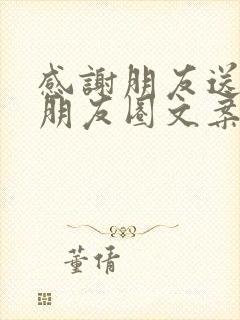 感謝朋友送
朋友圈文案
董倩